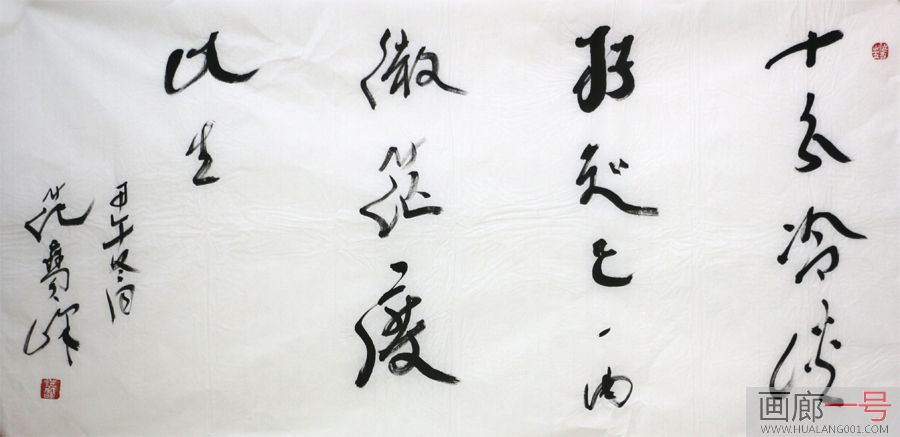 十分冷淡
存知己一曲
微茫度
此生
甲午冬
范
画廊一号
WWW.HUALANG001.COM